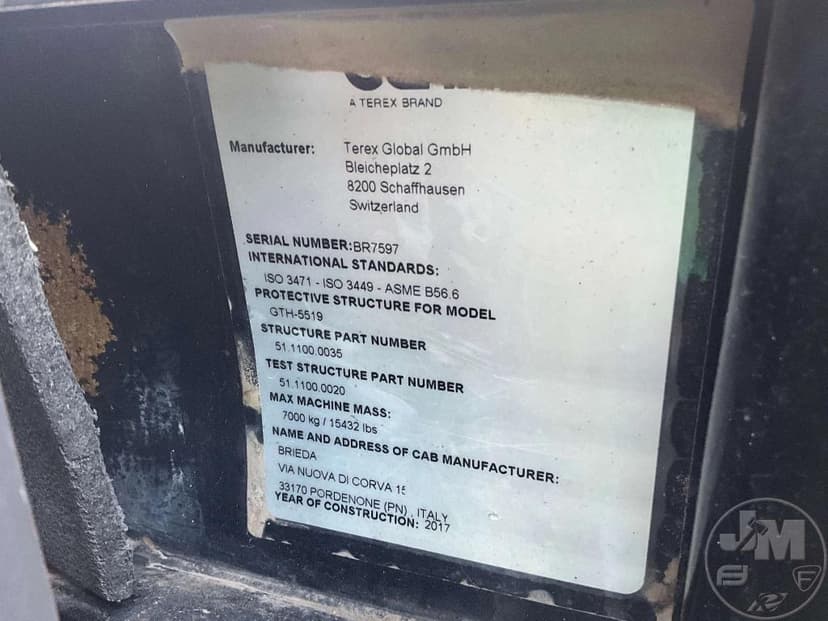 A TEREX BRAND
Manufacturer: Terex Global GmbH
Bleicheplatz 2
8200 Schaffhausen
Switzerland
SERIAL NUMBER:BR7597
INTERNATIONAL STANDARDS:
ISO 3471 - ISO 3449 - ASME B56.6
PROTECTIVE STRUCTURE FOR MODEL
GTH-5519
STRUCTURE PART NUMBER
51.1100.0035
TEST STRUCTURE PART NUMBER
51.1100.0020
MAX MACHINE MASS:
7000 kg / 15432 lbs
NAME AND ADDRESS OF CAB MANUFACTURER:
BRIEDA
VIA NUOVA DI CORVA
33170 PORDENONE (PN) , ITALY
YEAR OF CONSTRUCTION: 2017
JM